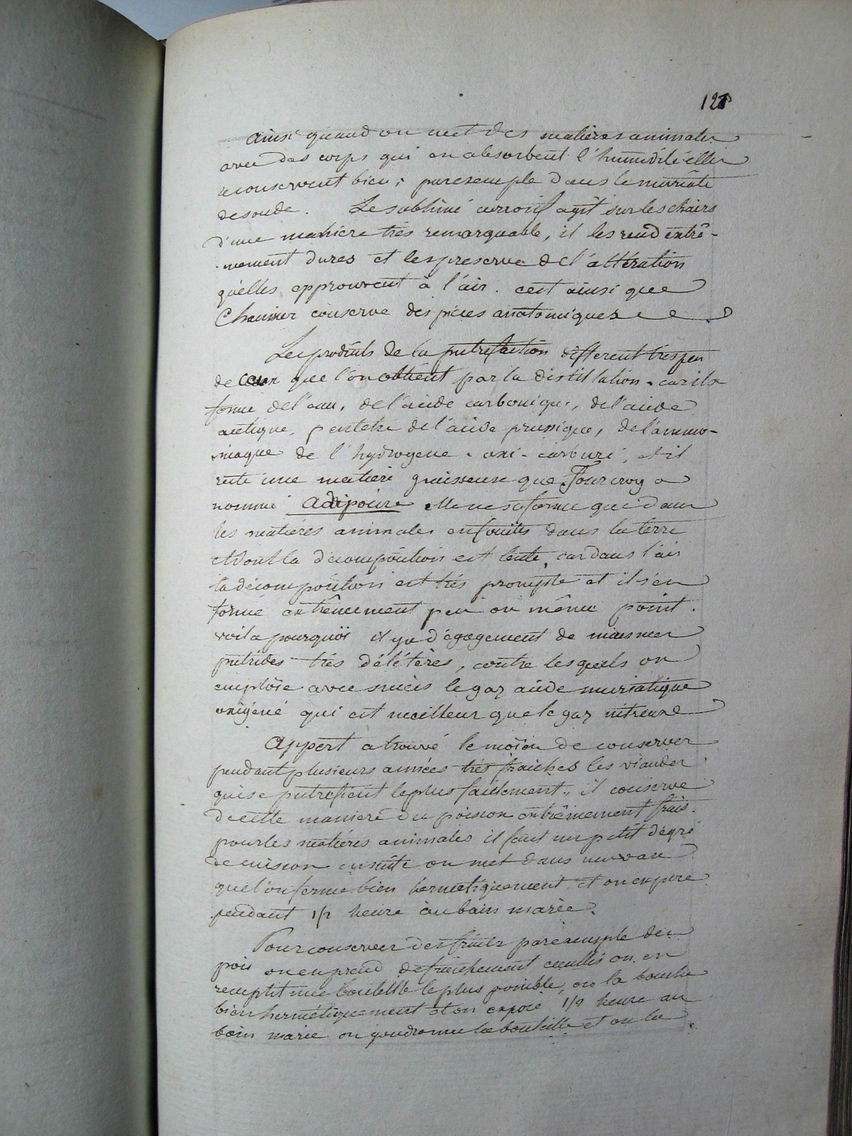 121
ainsi quand on met des matières animales
avec des corps qui en absorbent l'humidité elles
se conservent bien; par exemple dans le muriate
de soude. Le sublimé corrosif agit sur les chairs
d'une manière très remarquable, il les rend extrê-
-mement dures et les préserve de l'altération
qu'elles épprouvent à l'air. c'est ainsi que
Chaussier conserve des pièces anatomiques
Les produits de la putréfaction différent très peu
de ceux que l'on obtient par la distillation. car il se
forme de l'eau, de l'acide carbonique, de l'acide
acétique, peutetre de l'acide prussique, de l'ammo-
-niaque de l'hydrogène - oxi - carburé, et il
reste une matière graisseuse que Fourcroy a
nommé adipocire elle ne se forme que dans
les matières animales enfouies dans la terre
et dont la décomposition est lente, car dans l'air
la décomposition est très prompte et il s'en
forme extrêmement peu ou même point.
voila pourquoi il y a dégagement de miasmes
putrides très délétères, contre lesquels on
emploie avec succès le gaz acide muriatique
oxigéné qui est meilleur que le gaz nitreux
Appert a trouvé le moïen de conserver
pendant plusieurs années très fraiches les viandes
qui se putréfient le plus facilement, il conserve
de cette manière du poisson extrêmement frais.
pour les matières animales il faut un petit dégré
de cuisson ensuite on met dans un vase
que l'on ferme bien hermétiquement et on expose
pendant 1/2 heure au bain marie.
Pour conserver des fruits par exemple des
pois on en prend de fraichement cueillis on en
remplit une bouteille le plus possible, on la bouche
bien hermétiquement et on expose 1/2 heure au
bain marie on goudronne la bouteille et on la